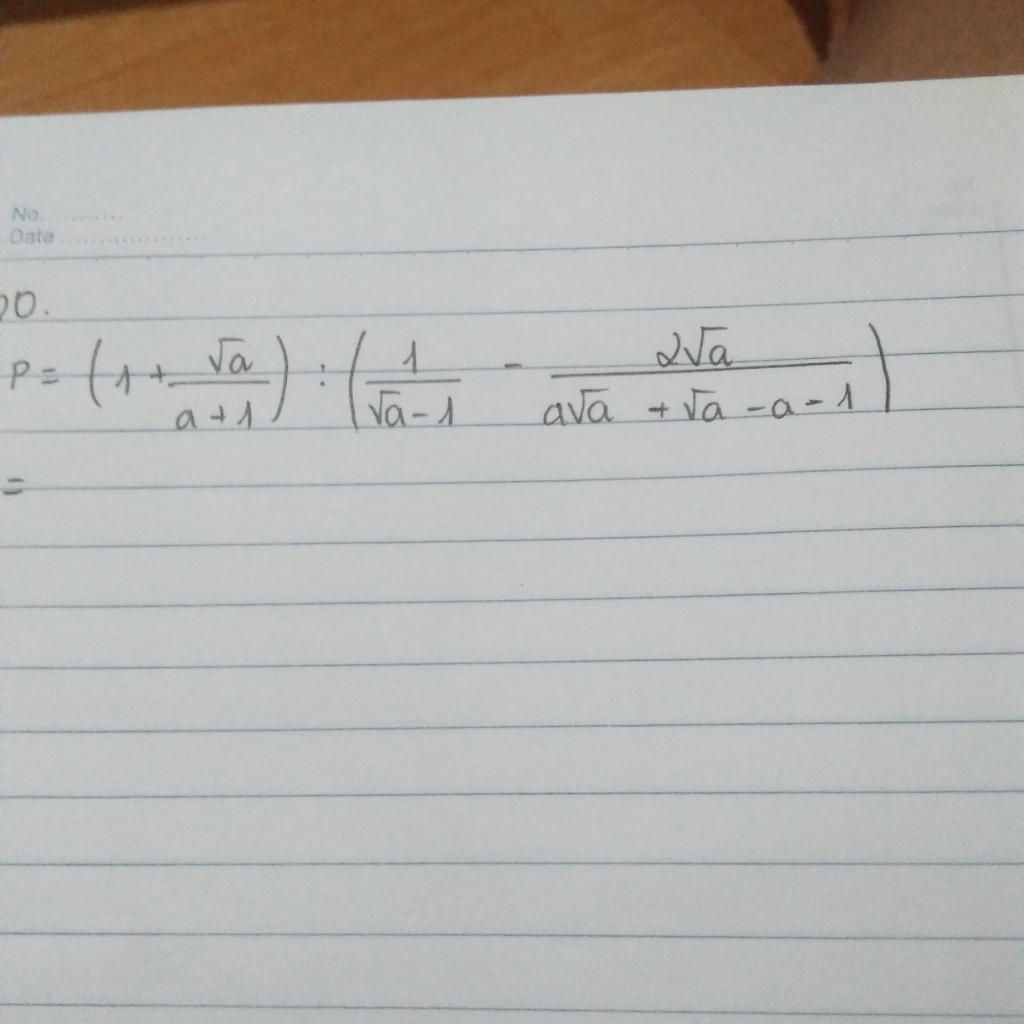 No. ........
Date ....................
20.
P = (1 + √a/(a + 1)) : (1/(√a - 1) - 2√a/(a√a + √a - a - 1))
=